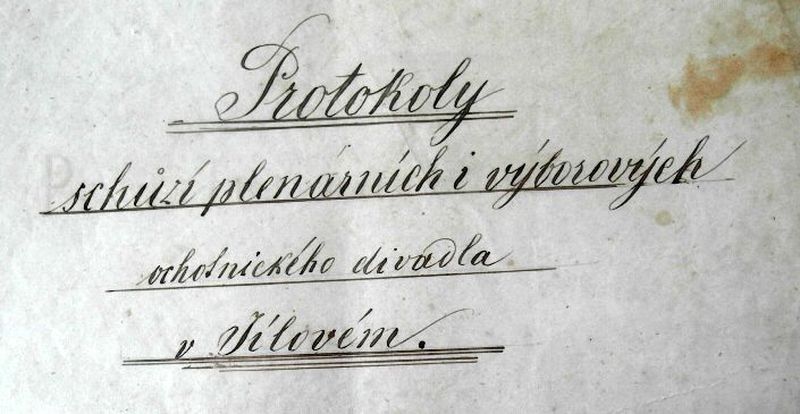 Protokoly
schůzí plenárních i výborových
ochotnického divadla
v Jílovém.